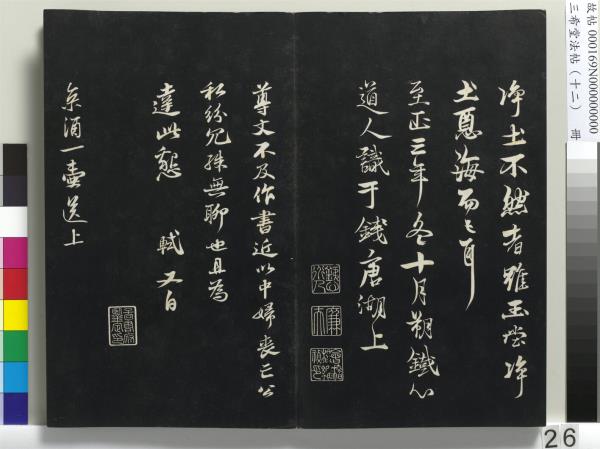 故帖 000169N000000000
三希堂法帖（十二） 冊
净土不然者雖玉堂净
土惡海而已耳
至正三年冬十月朔鐵心
道人識于錢唐湖上
尊丈不及作書近以中婦喪亡公
私紛冗殊無聊也且為
達此懇 軾又白
京酒一壺送上
26